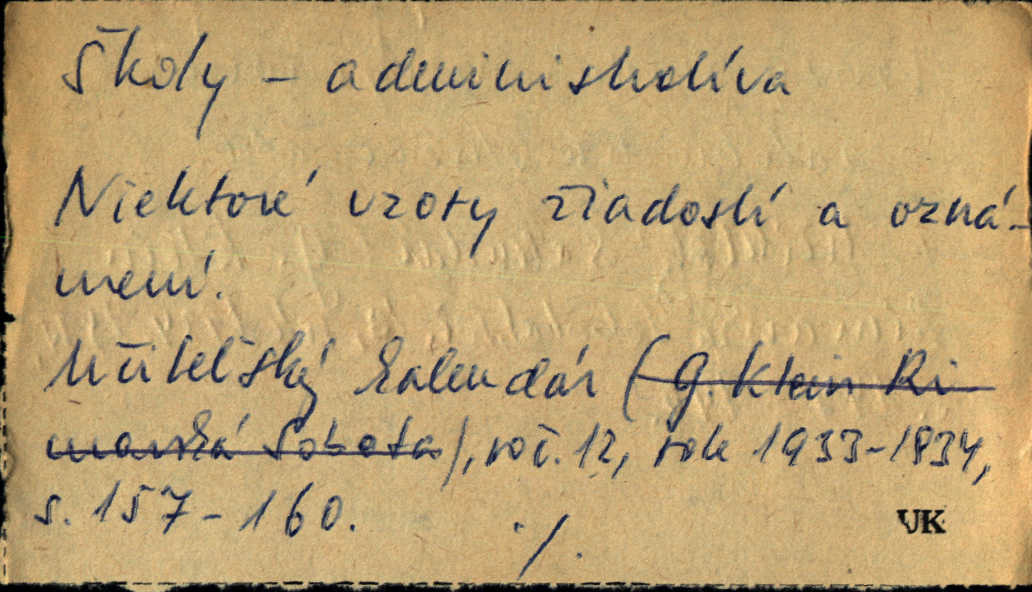 Školy - administratíva
Niektoré vzory žiadostí a ozná-
mení.
Učiteľský kalendár (G. Klein Ri-
mavská Sobota), roč. 12, rok 1933-1934,
s. 157-160.
./.
UK